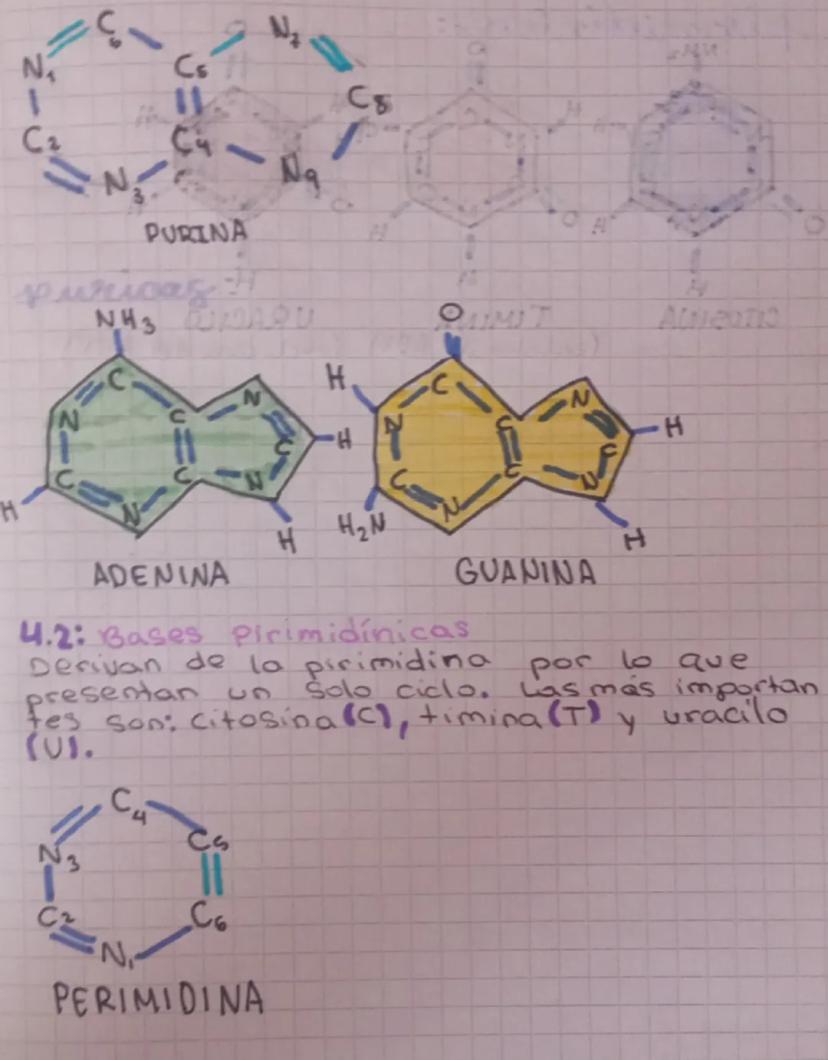 C6 N7
N1 C5
C8
C2 C4
N3 N9
PURINA
NH3
C
N C N
C H
C C N
H N H
ADENINA
O
H C
N C N
C H
C C N
H2N N H
GUANINA
4.2: Bases Pirimidínicas
Derivan de la pirimidina por lo que
presentan un solo ciclo. Las más importan
tes son: citosina (C), timina (T) y uracilo
(U).
C4
N3 C5
C2 C6
N1
PERIMIDINA